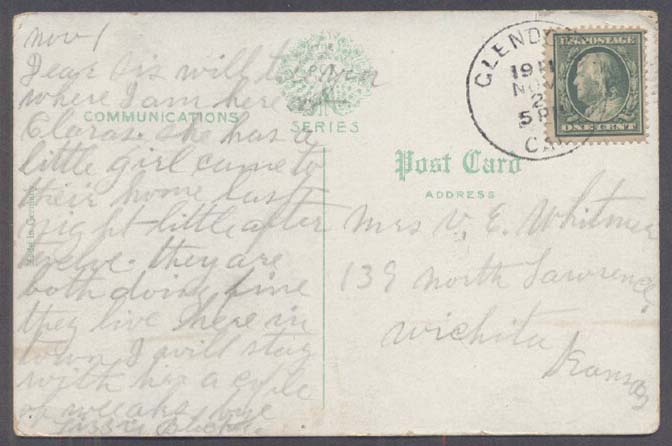 Nov 1
Dear Sis will tell you
where I am here at
Claras. She has a
little girl came to
their home last
night little after
twelve. they are
both doing fine
they live here in
town I will stay
with her a cuple
of weeaks
COMMUNICATIONS
SERIES
GLEND
191
NOV
2
5 P
CA
U.S. POSTAGE
ONE CENT
Post Card
ADDRESS
Mrs V. E. Whitmer
139 North Lawrence
Wichita
Kansas